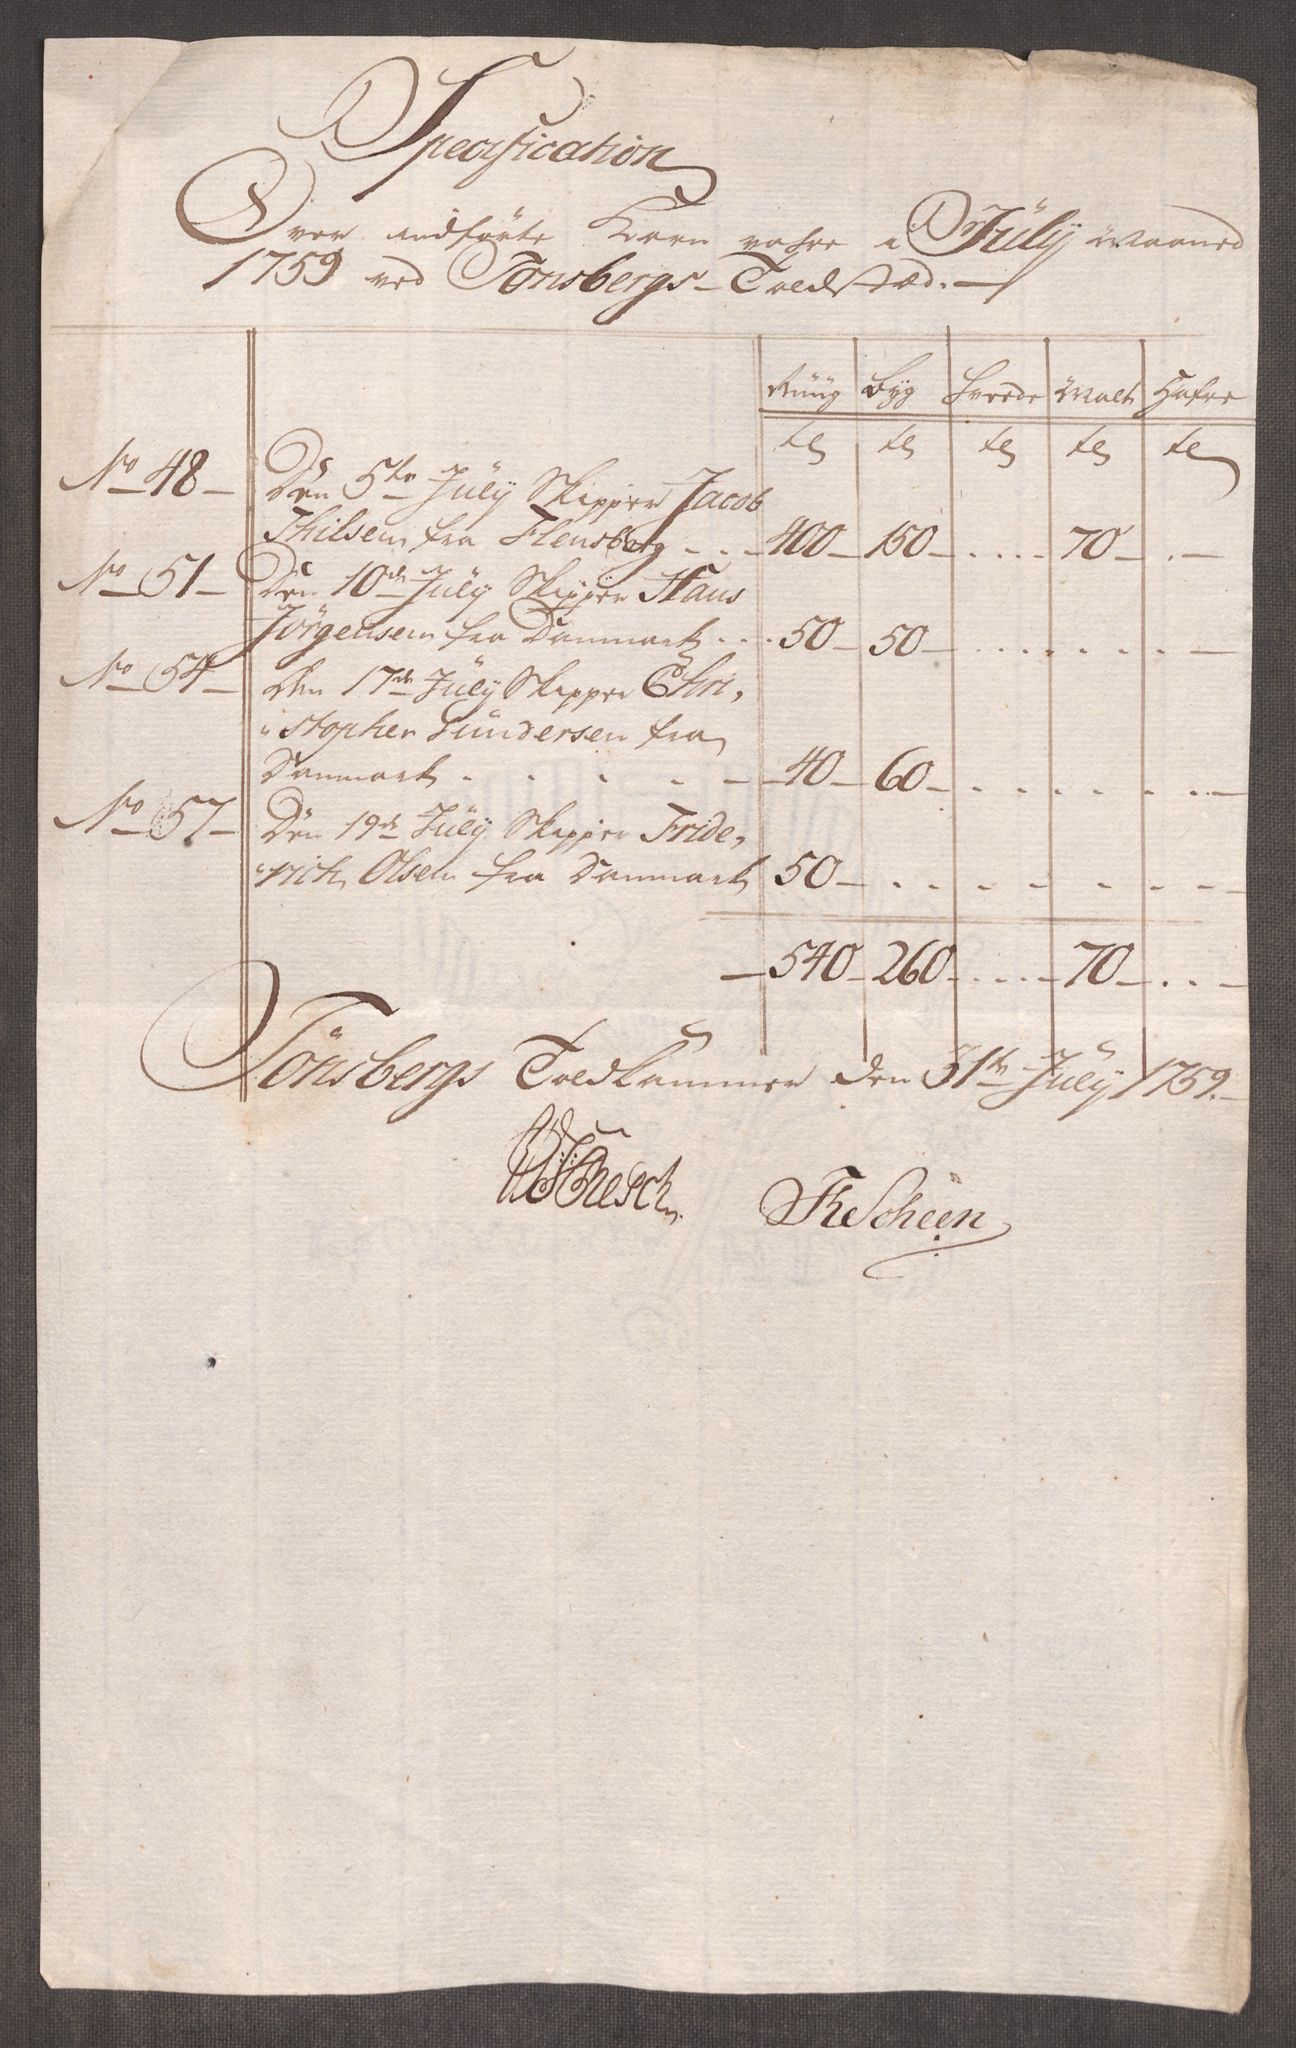 Specification
Over indförte Korn vahre i Július Maaned
1759 ved Tönsbergs Toldstæd.
Rúúg Byg Hvede Malt Hafre
tr tr tr tr tr
No 48 Den 5te Júly Skipper Jacob
Thilsen fra Flensborg 400 150 70
No 51 Den 10de Júly Skipper Hans
Jörgensen fra Danmark 50 50
No 54 Den 17de Júly Skipper Chri,
stopher Gúndersen fra
Danmark 40 60
No 57 Den 19de Júly Skipper Fride,
rich Olsen fra Danmark 50
540 260 70
Tönsbergs Toldkammer den 31te Júly 1759.
Scheen